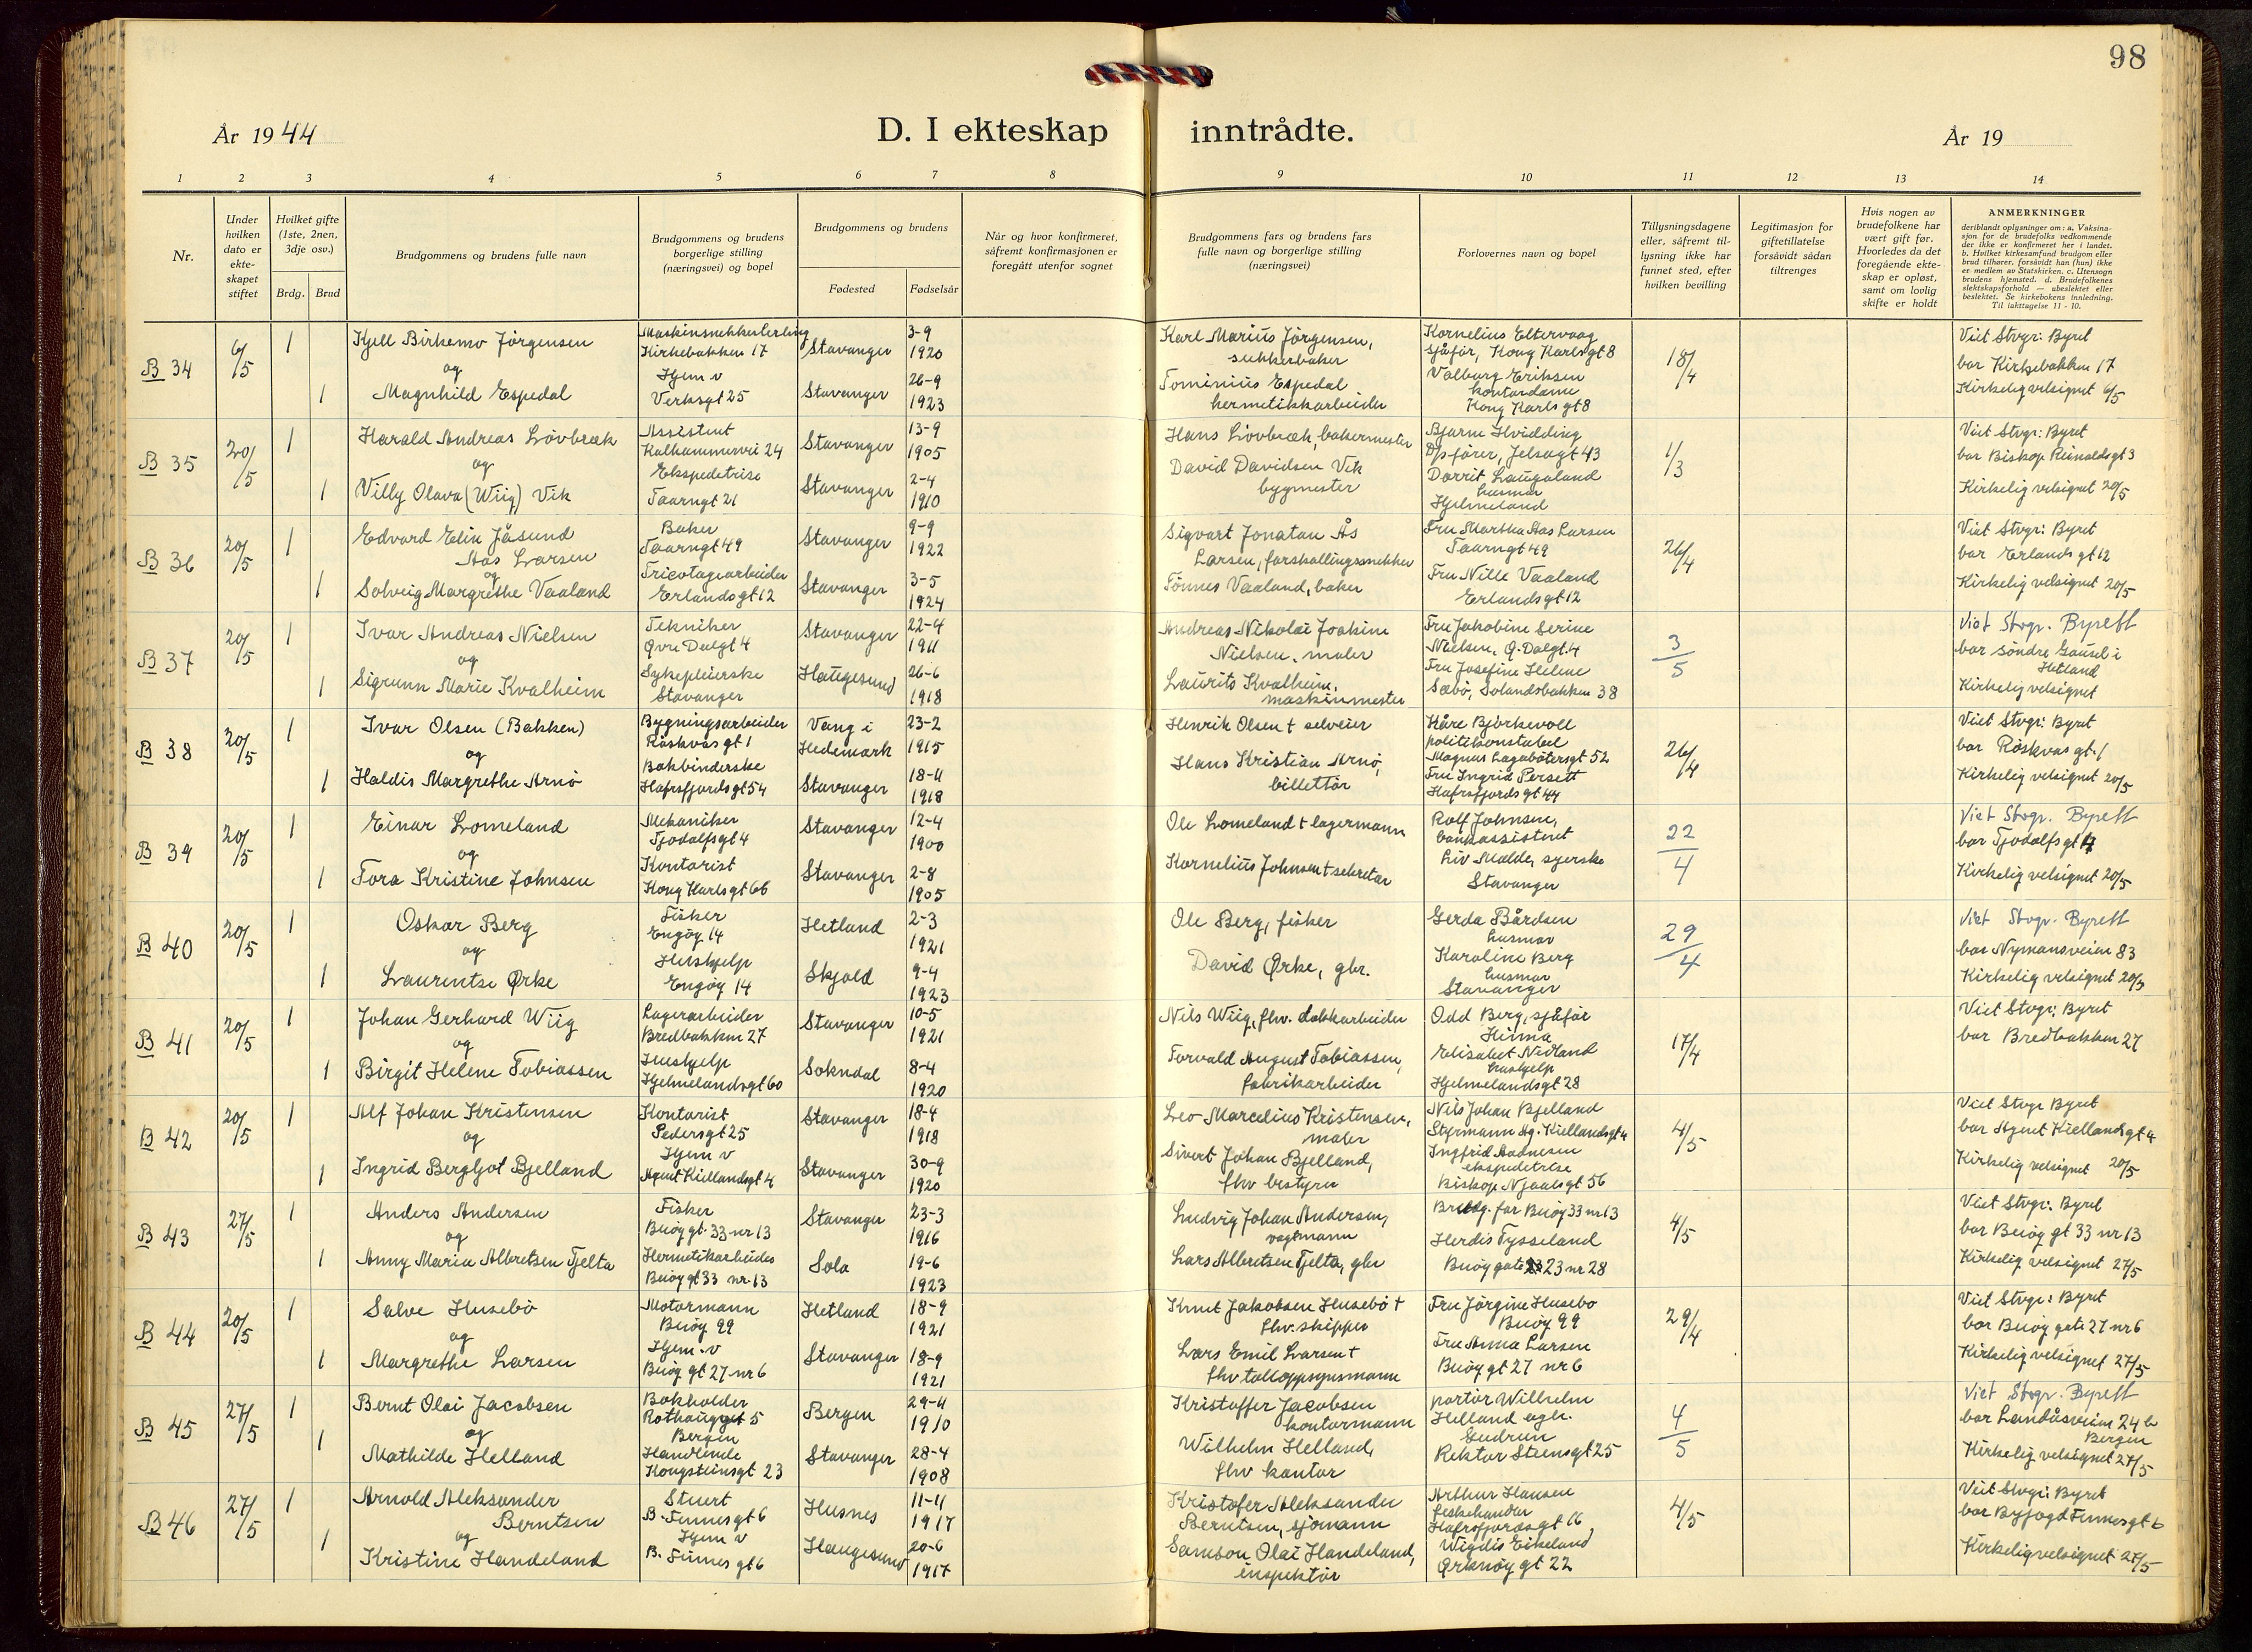 98
År 1944
D. I ekteskap inntrådte.
År 19
1 2 3 4 5 6 7 8 9 10 11 12 13 14
Nr.
Under hvilken dato er ekte- skapet stiftet
Hvilket gifte (1ste, 2nen, 3dje osv.)
Brdg. Brud
Brudgommens og brudens fulle navn
Brudgommens og brudens borgerlige stilling (næringsvei) og bopel
Brudgommens og brudens
Fødested
Fødselsår
Når og hvor konfirmeret, såfremt konfirmasjonen er foregått utenfor sognet
Brudgommens fars og brudens fars fulle navn og borgerlige stilling (næringsvei)
Forlovernes navn og bopel
Tillysningsdagene eller, såfremt til- lysning ikke har funnet sted, efter hvilken bevilling
Legitimasjon for giftetillatelse forsåvidt sådan tiltrenges
Hvis nogen av brudefolkene har vært gift før. Hvorledes da det foregående ekte- skap er opløst, samt om lovlig skifte er holdt
ANMERKNINGER
deriblandt oplysninger om: a. Vaksina- sjon for de brudefolks vedkommende der ikke er konfirmeret her i landet. b. Hvilket kirkesamfund brudgom eller brud tilhører, forsåvidt han (hun) ikke er medlem av Statskirken. c. Utensogn brudens hjemsted. d. Brudefolkenes slektskapsforhold — ubeslektet eller beslektet. Se kirkebokens innledning. Til iakttagelse 11 - 10.
B 34
6/5
1
Kjell Birkemo Jörgensen
og
1
Magnhild Espedal
Maskinsnekkerlerling
Kirkebakken 17
Hjem v
Verksgt 25
Stavanger
3-9
1920
Stavanger
26-9
1923
Karl Marius Jörgensen,
sukkerbaker
Tominius Espedal
hermetikkarbeider
Kornelius Eltervaag
sjåför, Kong Karlsgt 8
Valburg Eriksen
kontordame
Kong Karls gt 8
18/4
Viet Stvgr: Byret
bor Kirkebakken 17
Kirkelig velsignet 6/5
B 35
20/5
1
Harald Andreas Lövbræk
og
1
Villy Olava (Wiig) Vik
Assistent
Kalhammervei 24
Ekspedetrise
Taarngt 21
Stavanger
13-9
1905
Stavanger
2-4
1910
Hans Lövbræk, bakermester
David Davidsen Vik
bygmester
Bjarne Hvidding
D/s förer, Jelsagt 43
Dorrit Laugaland
husmor
Hjelmeland
1/3
Viet Stvgr: Byret
bor Biskop Reinaldsgt 3
Kirkelig velsignet 20/5
B 36
20/5
1
Edvard Elin Jåsund
Aas Larsen
og
1
Solveig Margrethe Vaaland
Baker
Taarngt 49
Tricotagearbeider
Erlandsgt 12
Stavanger
9-9
1922
Stavanger
3-5
1924
Sigvart Jonatan Ås
Larsen, forskallingssnekker
Tönnes Vaaland, baker
Fru Martha Aas Larsen
Taarngt 49
Fru Nille Vaaland
Erlandsgt 12
26/4
Viet Stvgr: Byret
bor Erlands gt 12
Kirkelig velsignet 20/5
B 37
20/5
1
Ivar Andreas Nielsen
og
1
Sigrunn Marie Kvalheim
Tekniker
Øvre Dalgt 4
Sykepleierske
Stavanger
Stavanger
22-4
1911
Haugesund
26-6
1918
Andreas Nikolai Joakim
Nielsen, maler
Laurits Kvalheim,
maskinmester
Fru Jakobine Serine
Nielsen, Ø. Dalgt. 4
Fru Josefine Helene
Sæbö, Solandsbakken 38
3/5
Viet Stvgr. Byrett
bor Söndre Gausel i
Hetland
Kirkelig velsignet
B 38
20/5
1
Ivar Olsen (Bakken)
og
1
Haldis Margrethe Arnö
Bygningsarbeider
Röskvas gt 1
Bokbinderske
Hafrsfjordsgt 54
Vang i
Hedemark
23-2
1915
Stavanger
18-11
1918
Henrik Olsen † selveier
Hans Kristian Arnö,
billettör
Kåre Björkevoll
politikonstabel
Magnus Lagabötersgt 52
Fru Ingrid Persett
Hafrsfjords gt 44
26/4
Viet Stvgr: Byret
bor Röskvas gt. 1
Kirkelig velsignet 20/5
B 39
20/5
1
Einar Lomeland
og
1
Tora Kristine Johnsen
Mekaniker
Tjodolfsgt 4
Kontorist
Kong Karlsgt 66
Stavanger
12-4
1900
Stavanger
2-8
1905
Ole Lomeland † lagermann
Kornelius Johnsen † sekretær
Rolf Johnsen,
bankassistent
Liv Malde, syerske
Stavanger
22/4
Viet Stvgr. Byrett
bor Tjodolfsgt 4
Kirkelig velsignet 20/5
B 40
20/5
1
Oskar Berg
og
1
Laurentse Ørke
Fisker
Engöy 14
Hushjelp
Engöy 14
Hetland
2-3
1921
Skjold
9-4
1923
Ole Berg, fisker
David Ørke, gbr.
Gerda Bårdsen
husmor
Karoline Berg
husmor
Stavanger
29/4
Viet Stvgr. Byrett
bor Nymansveien 83
Kirkelig velsignet 20/5
B 41
20/5
1
Johan Gerhard Wiig
og
1
Birgit Helene Tobiassen
Lagerarbeider
Bredbakken 27
Hushjelp
Hjelmelandsgt 60
Stavanger
10-5
1921
Sokndal
8-4
1920
Nils Wiig, fhv. dokkarbeider
Torvald August Tobiassen,
fabrikarbeider
Odd Berg, sjåför
Hinna
Elisabet Nedland
hushjelp
Hjelmelandsgt 28
17/4
Viet Stvgr: Byret
bor Bredbakken 27
B 42
20/5
1
Alf Johan Kristensen
og
1
Ingrid Bergljot Bjelland
Kontorist
Pedersgt 25
Hjem v
Agent Kiellandsgt 4
Stavanger
18-4
1918
Stavanger
30-9
1920
Leo Marcelius Kristensen,
maler
Sivert Johan Bjelland,
fhv bestyrer
Nils Johan Bjelland
Styrmann Ag. Kiellandsgt 4
Ingfrid Aadnesen
ekspedetrise
Biskop Njaalsgt 56
4/5
Viet Stvgr Byret
bor Agent Kiellandsgt 4
Kirkelig velsignet 20/5
B 43
27/5
1
Anders Andersen
og
1
Anny Maria Albretsen Tjelta
Fisker
Buöy gt. 33 nr 13
Hermetikarbeider
Buöy gt 33 nr. 13
Stavanger
23-3
1916
Sola
19-6
1923
Ludvig Johan Andersen,
vagtmann
Lars Albretsen Tjelta, gbr
Brudg. far Buöy 33 nr 13
Herdis Tysseland
Buöy gate 23 nr 28
4/5
Viet Stvgr: Byret
bor Buöy gt 33 nr 13
Kirkelig velsignet 27/5
B 44
20/5
1
Salve Husebö
og
1
Margrethe Larsen
Motormann
Buöy 99
Hjem v
Buöy gt 27 nr 6
Hetland
18-9
1921
Stavanger
18-9
1921
Knut Jakobsen Husebö †
fhv. skipper
Lars Emil Larsen †
fhv tolloppsynsmann
Fru Jörgine Husebö
Buöy 99
Fru Anna Larsen
Buöy gt 27 nr 6
29/4
Viet Stvgr: Byret
bor Buöy gate 27 nr 6
Kirkelig velsignet 27/5
B 45
27/5
1
Bernt Olai Jacobsen
og
1
Mathilde Helland
Bokholder
Rothaugsgt 5
Bergen
Handlende
Kongsteinsgt 23
Bergen
29-11
1910
Stavanger
28-4
1908
Kristoffer Jacobsen
kontormann
Wilhelm Helland,
fhv kantor
portör Wilhelm
Helland og
Gudrun
Rektor Steensgt 25
4/5
Viet Stvgr. Byrett
bor Landåsveien 24 b
Bergen
Kirkelig velsignet 27/5
B 46
27/5
1
Arnold Aleksander
Berntsen
og
1
Kristine Handeland
Stuert
B. Finnesgt 6
Hjem v
B. Finnes gt 6
Husnes
11-11
1917
Haugesund
20-6
1917
Kristofer Aleksander
Berntsen, sjömann
Samson Olai Handeland,
inspektör
Arthur Hansen
fiskehandler
Hafrsfjordsgt 16
Wigdis Eikeland
Ørknöy gt 22
4/5
Viet Stvgr: Byret
bor Byfogd Finnesgt 6
Kirkelig velsignet 27/5